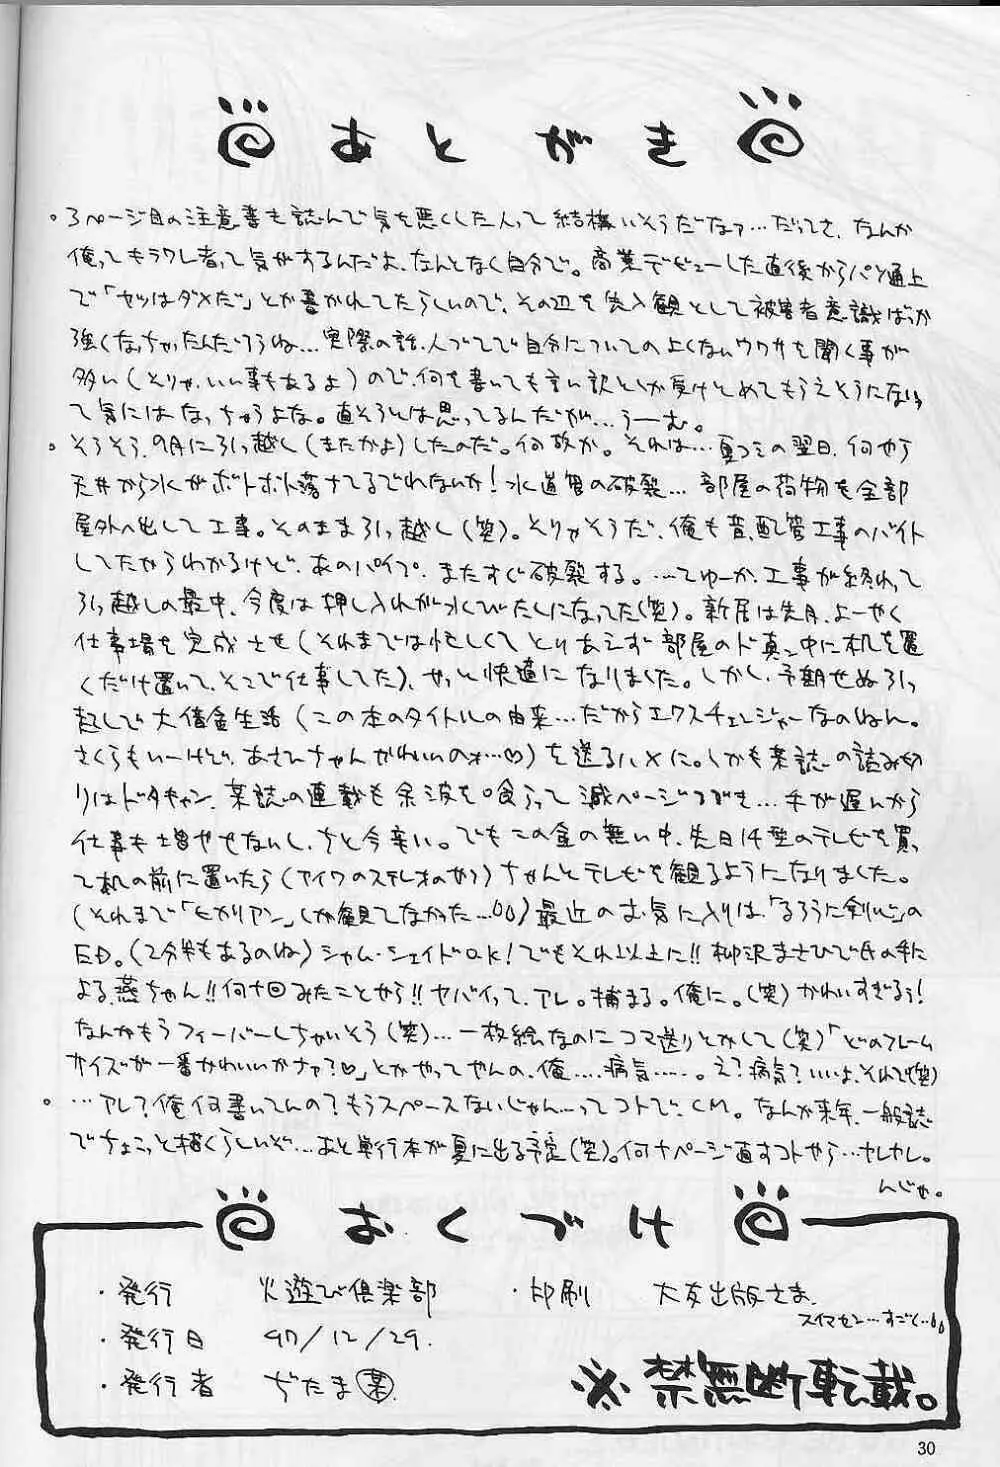 あとがき
。3ページ目の注意書も読んで気を悪くした人って結構いそうだなァ…だってさ、なんか
俺ってキラワレ者って気がするんだよ、なんとなく自分で。商業デビューした直後からパソ通上
で「ヤツはダメだ」とか書かれてたらしいので、その辺を先入観として被害者意識ばっか
強くなっちゃったんだろうね…実際の話、人づてで自分についての良くないウワサを聞く事が
多い(そりゃ、いい事もあるよ)ので、何を書いても言い訳としか受けとめてもらえそうにないっ
て気にはなっちゃうよな。直そうとは思ってるんだが…うーむ。
。そうそう、9月に引っ越し(またかよ)したのだ。何故か。それは…夏コミの翌日、何やら
天井から水がボトボト落ちてるでわないか!水道管の破裂…部屋の荷物を全部
屋外へ出して工事。そのまま引っ越し(笑)。そりゃそうだ、俺も昔、配管工事のバイト
してたからわかるけど、あのパイプ、またすぐ破裂する。…てゆーか、工事が終わって
引っ越しの最中、今度は押し入れが水びたしになってた(笑)。新居は先月、よーやく
仕事場を完成させ(それまでは忙しくてとりあえず部屋のド真ン中に机を置
くだけ置いて、そこで仕事してた)、やっと快適になりました。しかし、予期せぬ引っ
越しで大借金生活(この本のタイトルの由来…だからエクスチェンジャーなのねん。
さくらもいーけど、あさひちゃんかわいいのォ…♡)を送るハメに。しかも某誌の読み切
りはドタキャン、某誌の連載も余波を喰らって減ページ
手が遅いから
仕事も増やせないし、ちと今辛い。でもこの金の無い中、先日14型のテレビを買っ
て机の前に置いたら(アイワのステレオのやつ)ちゃんとテレビを観るようになりました。
(それまで「ヒカリアン」しか観てなかった…)最近のお気に入りは、「るろうに剣心」の
ED。(2分半もあるのね)シャム・シェイドOK!でもそれ以上に!!柳沢まさひで氏の手に
よる燕ちゃん!!何十回みたことやら!!ヤバイって、アレ。捕まる。俺に。(笑)かわいすぎるぅ!
なんかもうフィーバーしちゃいそう(笑)…一枚絵なのにコマ送りとかして(笑)「どのフレーム
サイズが一番かわいいかナァ?♡」とかやってやんの、俺……病気……。え?病気?いいよ、それで(笑)
。…アレ?俺何書いてんの?もうスペースないじゃん…ってコトで、CM。なんか来年、一般誌
でちょこっと描くらしいぞ…あと単行本が夏に出る予定(笑)。何十ページ直すコトやら…ヤレヤレ。
んじゃ。
おくづけ
・発行 火遊び倶楽部 ・印刷 大友出版さま
スイマセン…すごく…
・発行日 97/12/29.
・発行者 ぢたま(某)
※禁無断転載。
30